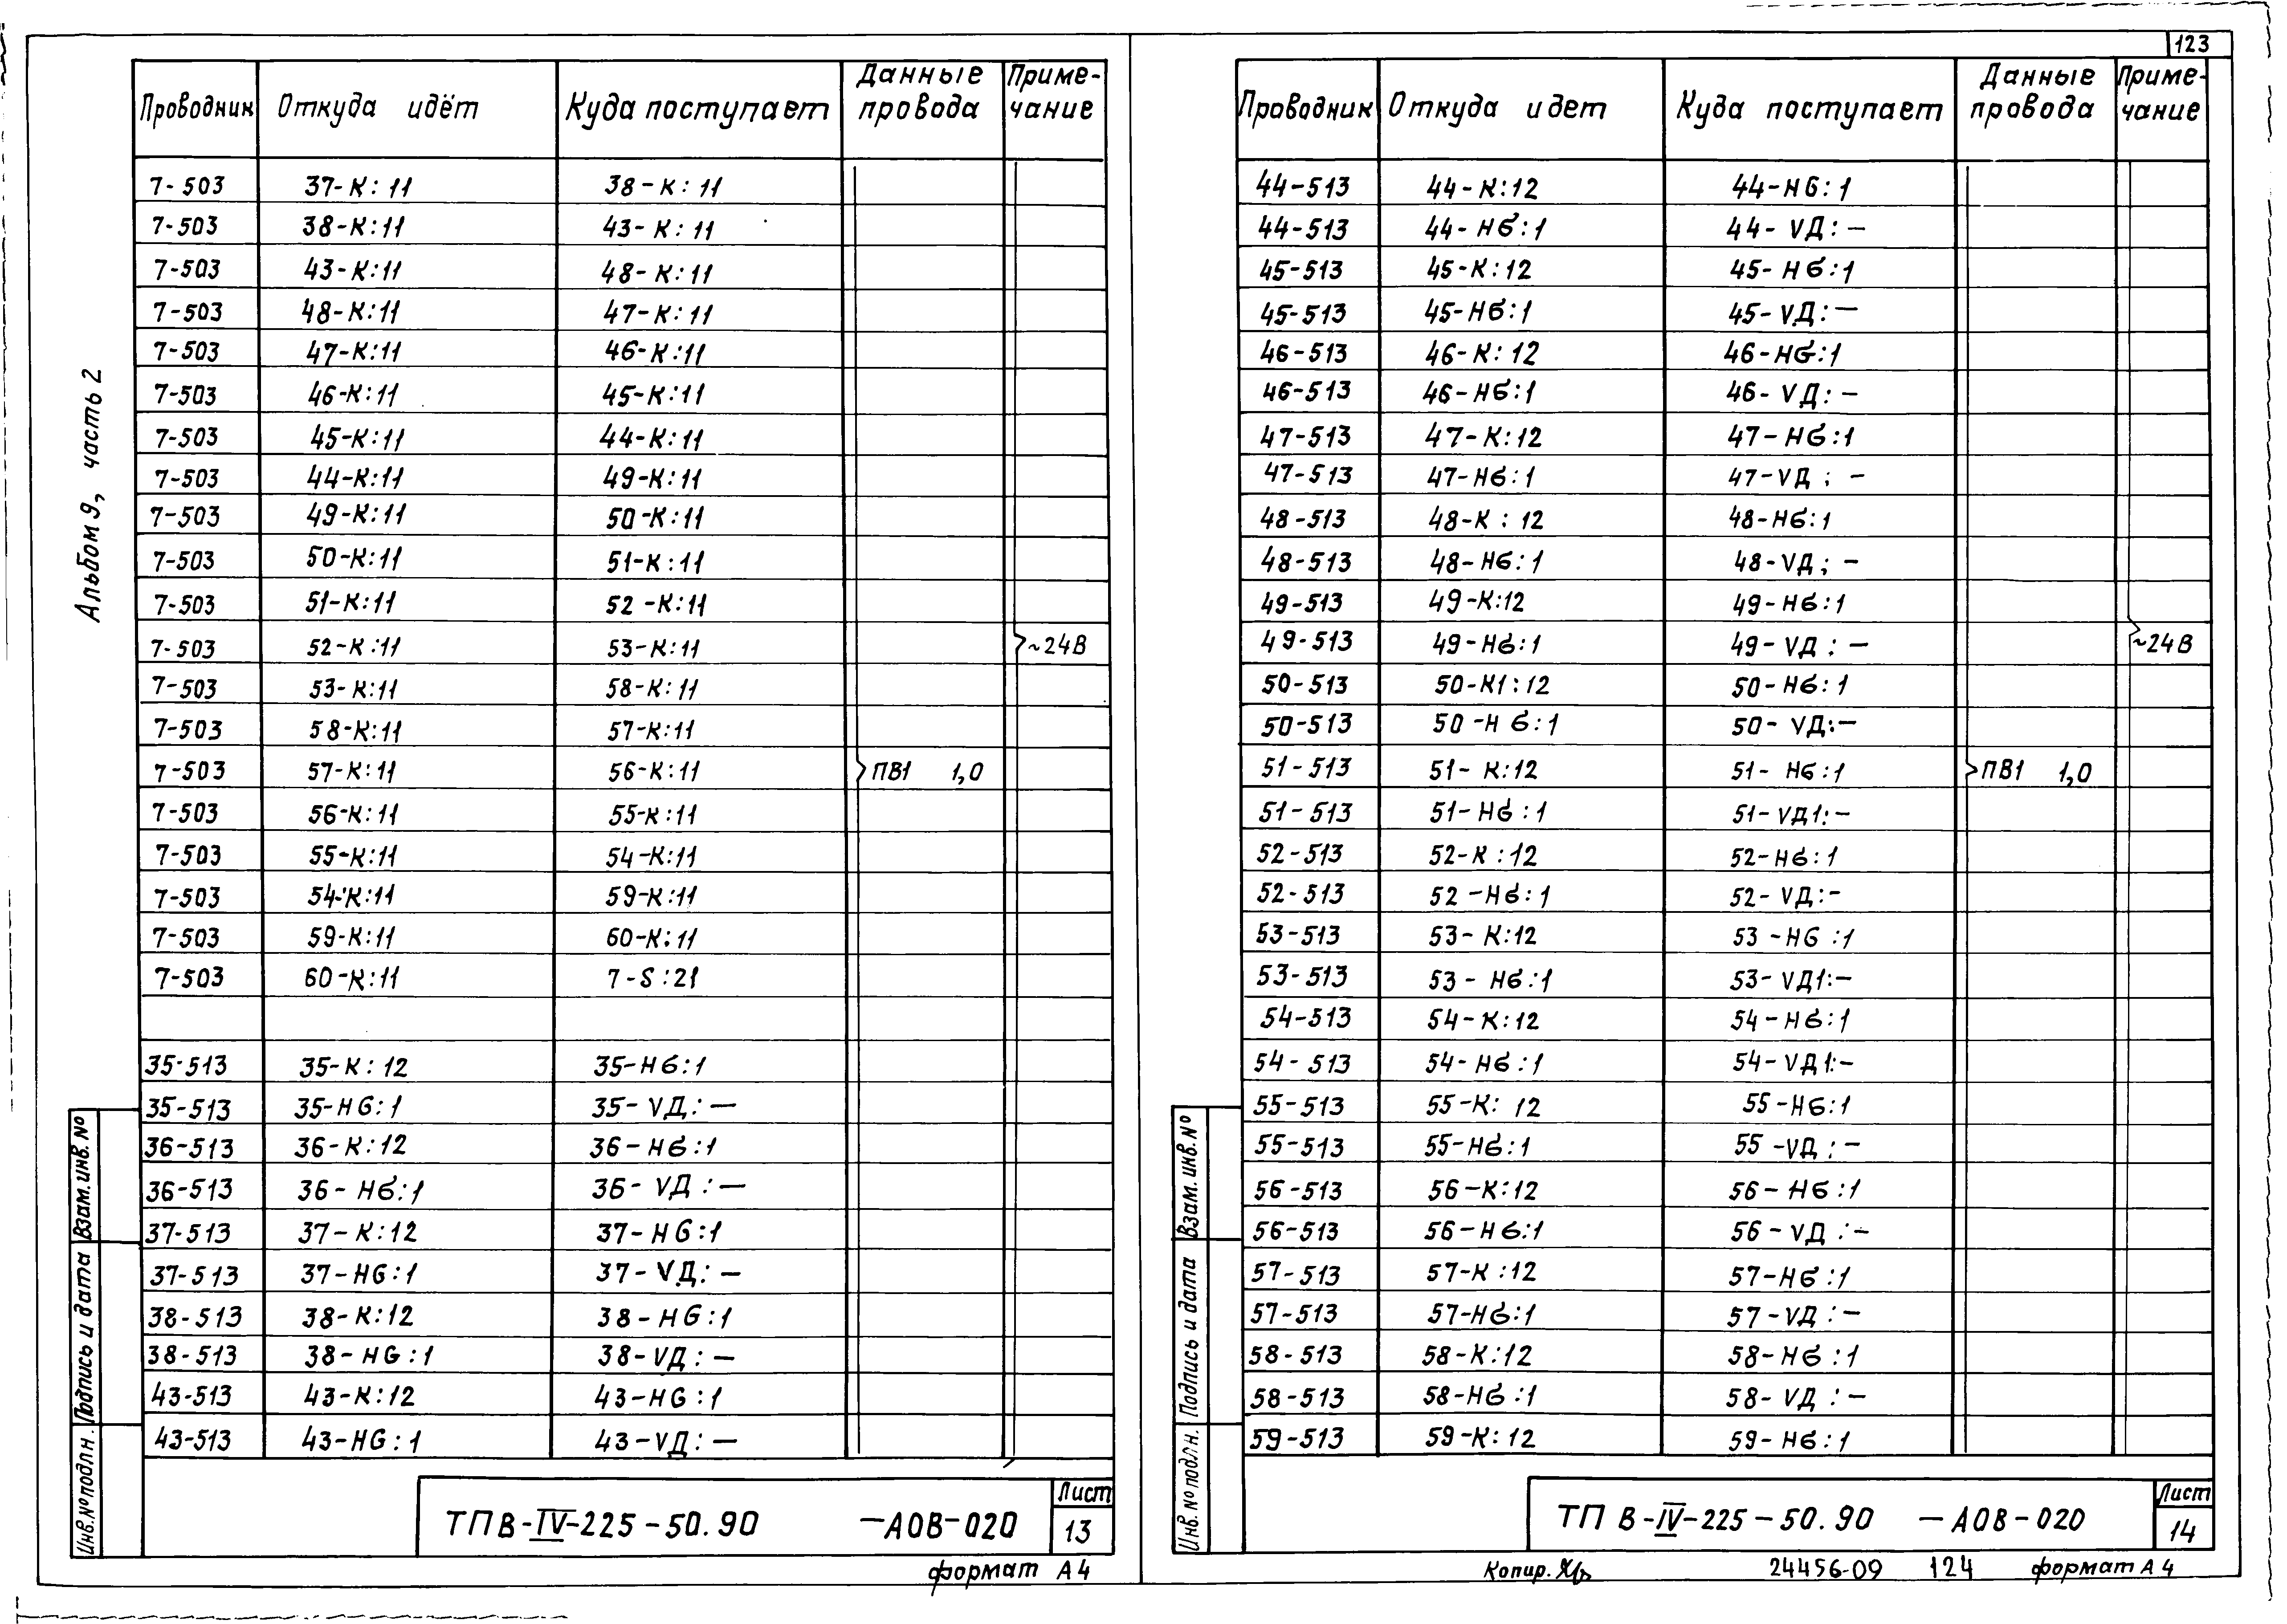 123
Альбом 9, часть 2
Проводник Откуда идёт Куда поступает Данные провода Приме-чание
7-503 37-К:11 38-К:11
7-503 38-К:11 43-К:11
7-503 43-К:11 48-К:11
7-503 48-К:11 47-К:11
7-503 47-К:11 46-К:11
7-503 46-К:11 45-К:11
7-503 45-К:11 44-К:11
7-503 44-К:11 49-К:11
7-503 49-К:11 50-К:11
7-503 50-К:11 51-К:11
7-503 51-К:11 52-К:11
7-503 52-К:11 53-К:11 ~24В
7-503 53-К:11 58-К:11
7-503 58-К:11 57-К:11
7-503 57-К:11 56-К:11 ПВ1 1,0
7-503 56-К:11 55-К:11
7-503 55-К:11 54-К:11
7-503 54-К:11 59-К:11
7-503 59-К:11 60-К:11
7-503 60-К:11 7-S:21
35-513 35-К:12 35-HG:1
35-513 35-HG:1 35-VД:—
36-513 36-К:12 36-HG:1
36-513 36-HG:1 36-VД:—
37-513 37-К:12 37-HG:1
37-513 37-HG:1 37-VД:—
38-513 38-К:12 38-HG:1
38-513 38-HG:1 38-VД:—
43-513 43-К:12 43-HG:1
43-513 43-HG:1 43-VД:—
Взам. инв. №
Подпись и дата
Инв. № подлн.
ТПВ-IV-225-50.90 —АОВ-020
Лист
13
формат А4
Проводник Откуда идет Куда поступает Данные провода Приме-чание
44-513 44-К:12 44-HG:1
44-513 44-HG:1 44-VД:—
45-513 45-К:12 45-HG:1
45-513 45-HG:1 45-VД:—
46-513 46-К:12 46-HG:1
46-513 46-HG:1 46-VД:—
47-513 47-К:12 47-HG:1
47-513 47-HG:1 47-VД:—
48-513 48-К:12 48-HG:1
48-513 48-HG:1 48-VД;—
49-513 49-К:12 49-HG:1
49-513 49-HG:1 49-VД:— ~24В
50-513 50-К1:12 50-HG:1
50-513 50-HG:1 50-VД:—
51-513 51-К:12 51-HG:1 ПВ1 1,0
51-513 51-HG:1 51-VД1:—
52-513 52-К:12 52-HG:1
52-513 52-HG:1 52-VД:-
53-513 53-К:12 53-HG:1
53-513 53-HG:1 53-VД1:—
54-513 54-К:12 54-HG:1
54-513 54-HG:1 54-VД1:—
55-513 55-К:12 55-HG:1
55-513 55-HG:1 55-VД:—
56-513 56-К:12 56-HG:1
56-513 56-HG:1 56-VД:—
57-513 57-К:12 57-HG:1
57-513 57-HG:1 57-VД:—
58-513 58-К:12 58-HG:1
58-513 58-HG:1 58-VД:—
59-513 59-К:12 59-HG:1
Взам. инв. №
Подпись и дата
Инв. № подлн.
ТП В-IV-225-50.90 —АОВ-020
Лист
14
Копир. 24456-09 124 формат А4